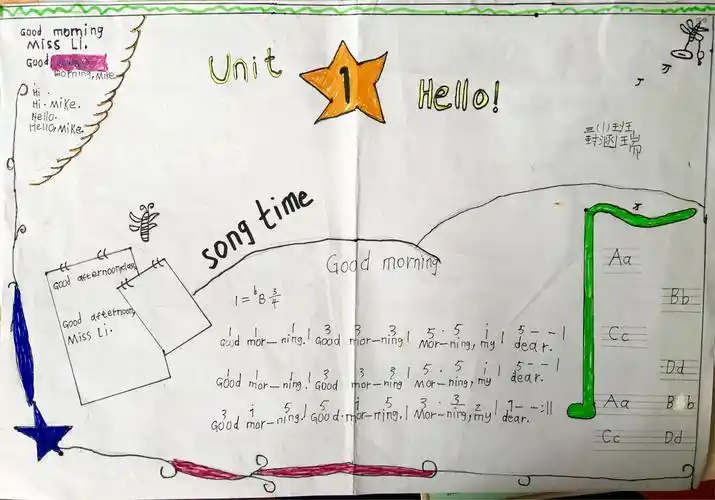 Good morning
Miss Li.
Good
morning, Mike
Hi.
Hi. Mike.
Hello.
Hello, Mike.
Unit 1 Hello!
三(1)班
封涵瑞
song time
Good afternoon, class
Good afternoon,
Miss Li.
Good morning
1=ᵇB 3/4
1 1 1 | 3 3 3 | 5 · 5 i | 5 - - |
Good mor—ning. | Good mor—ning. | Mor—ning, my | dear.
1 1 1 | 3 3 3 | 5 · 5 i | 5 - - |
Good mor—ning. | Good mor—ning | Mor—ning, my | dear.
3 i 5 | 5 i 5 | 3 · 3 2 | 1 - - :||
Good mor—ning. | Good. mor—ning. | Mor—ning, my | dear.
Aa
Bb
Cc
Dd
Aa B b
Cc Dd